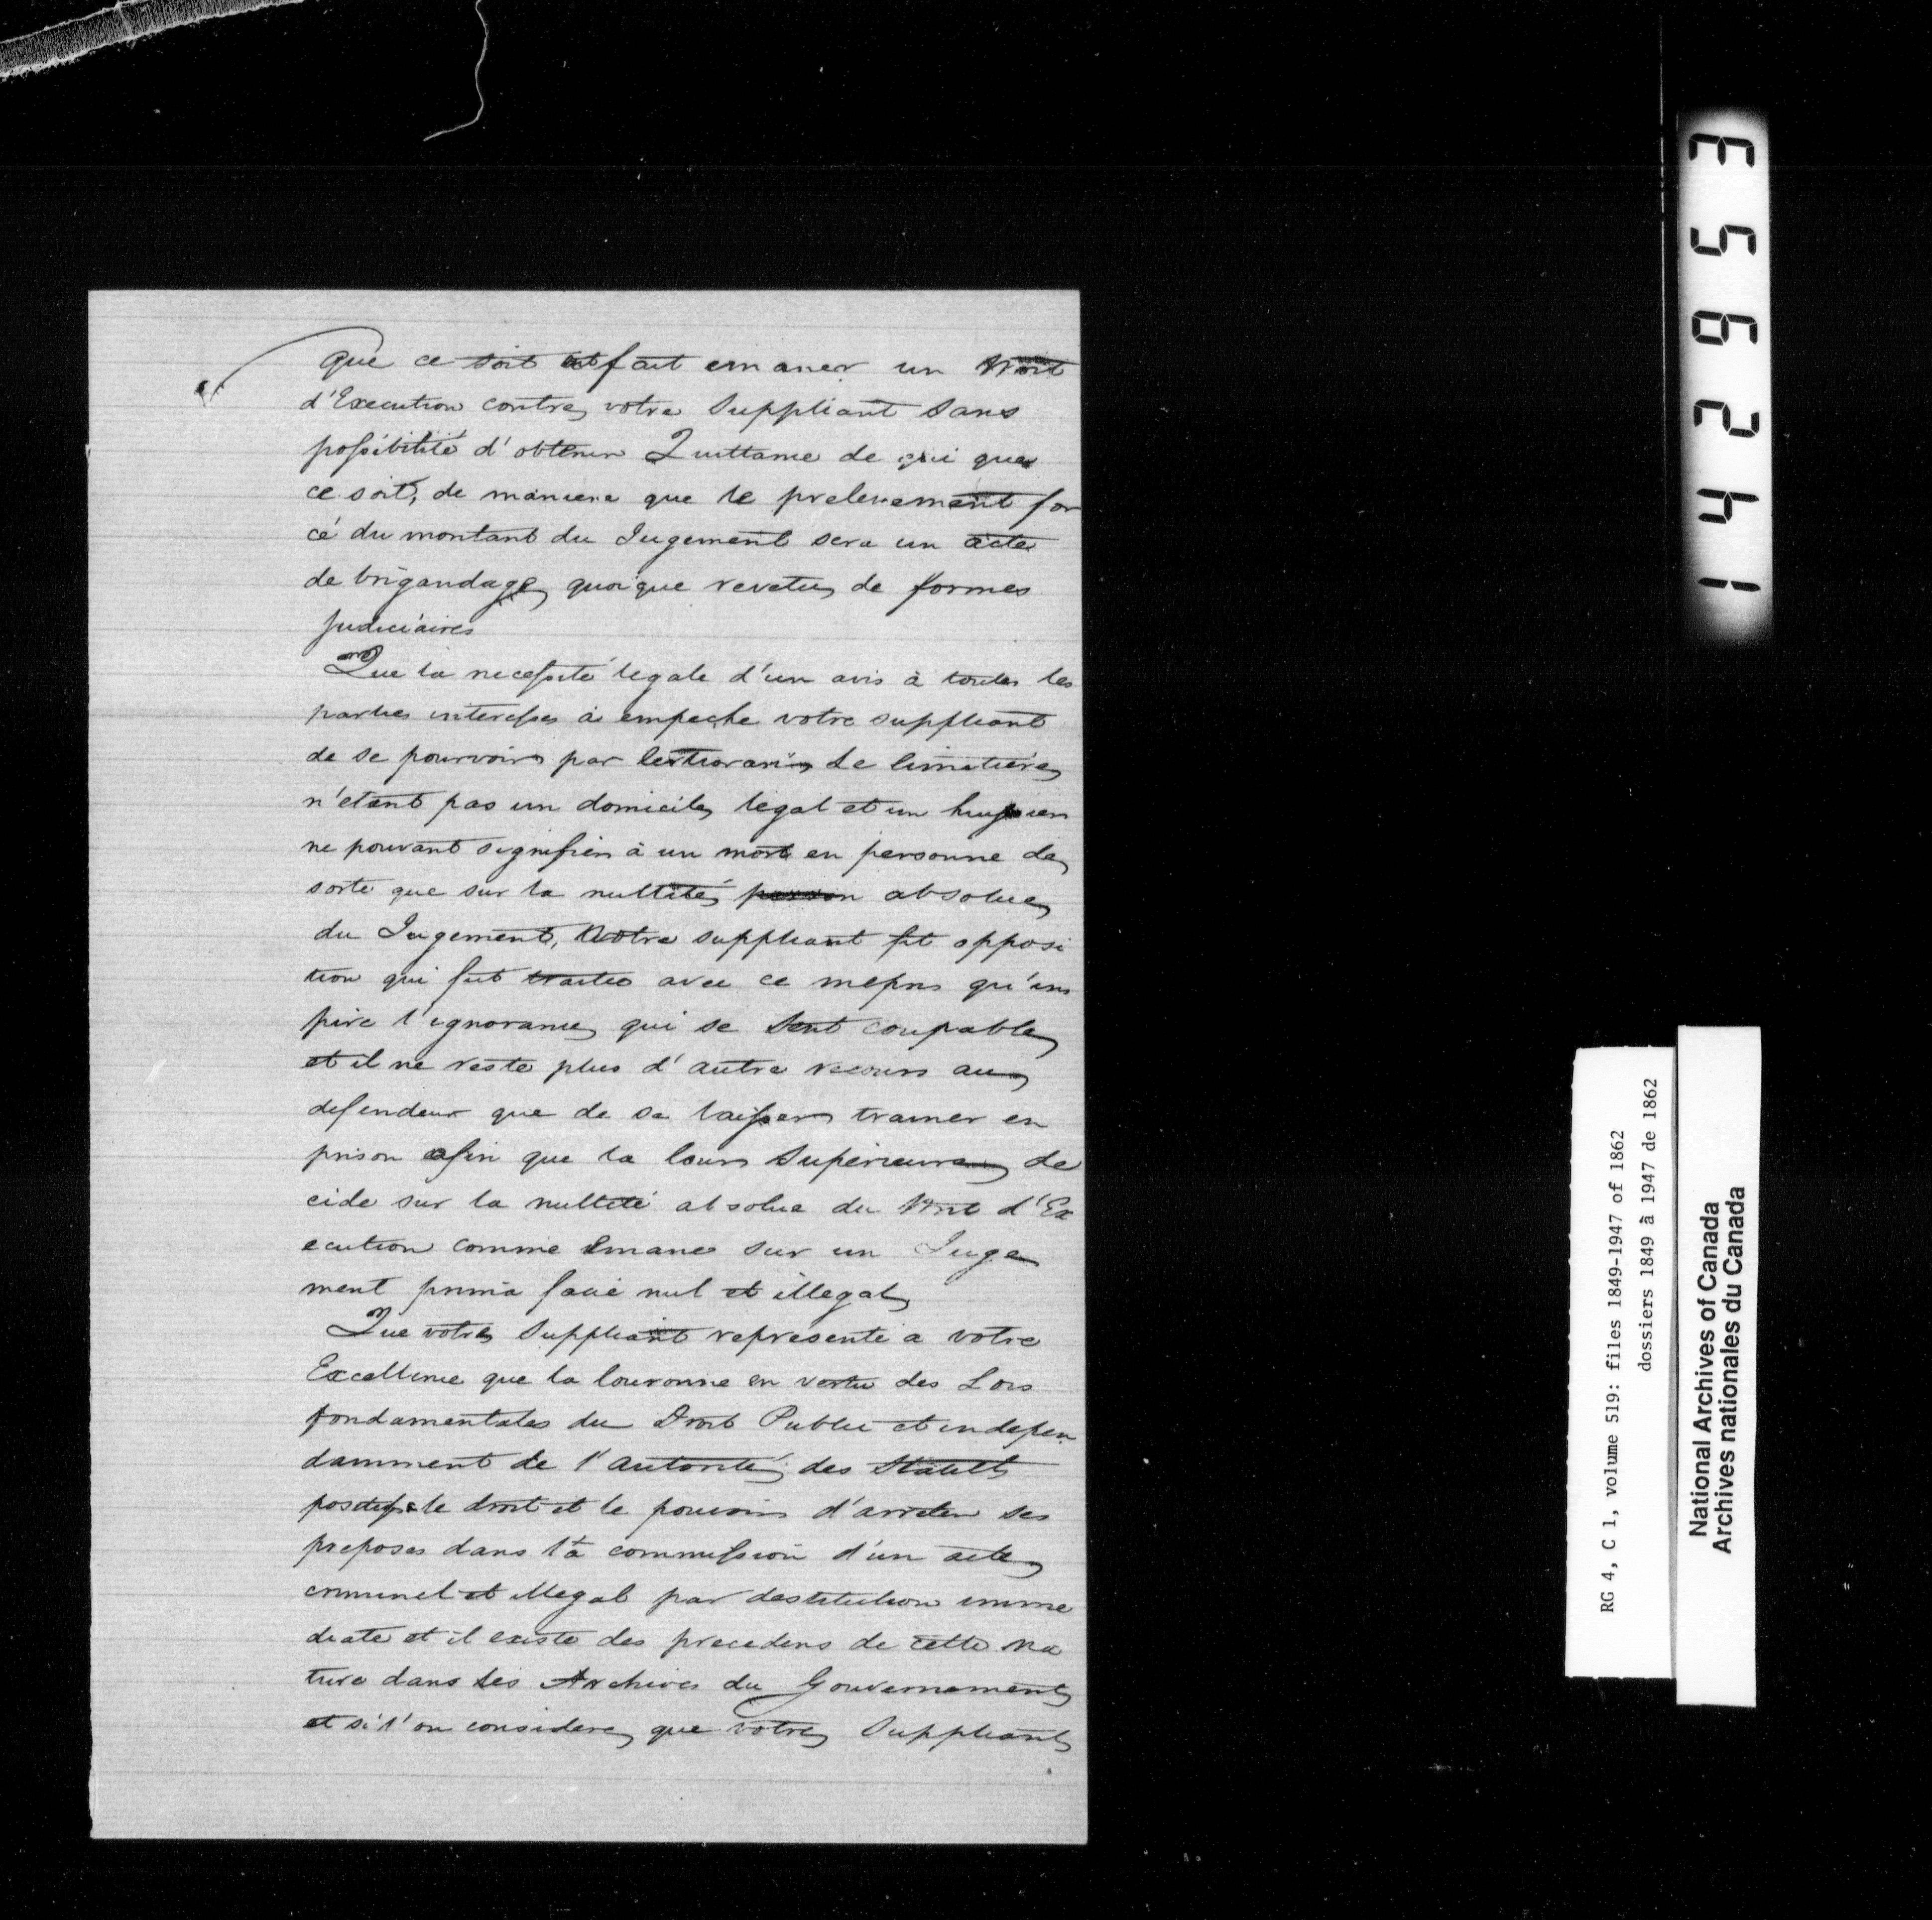 que ce soit ait fait emaner un Writ
d'Execution contre votre Suppliant sans
possibilité d'obtenir Quittance de qui que
ce soit, de maniere que le prelevement for
cé du montant du Jugement sera un acte
de brigandage quoique revetu de formes
judiciaires
Que la necessité legale d'un avis à toutes les
parties interesses à empeche votre suppliant
de se pourvoir par Certiorari, Le Cimetière
n'etant pas un domicile légal et un huissier
ne pouvant signifier à un mort en personne de
sorte que sur la nullité absolue
du Jugement, Votre suppliant fit opposi
tion qui fut traitée avec ce mepris qu'ins
pire l'ignorance qui se sent coupable
et il ne reste plus d'autre recours au
defendeur que de se laisser trainer en
prison afin que la Cour Supérieure de
cide sur la nullité absolue du Writ d'Ex
ecution comme emané sur un Juge
ment prima facie nul et illegal
Que votre Suppliant represente a votre
Excellence que la Couronne en vertu des Lois
fondamentales du Droit Public et indepen
damment de l'autorité des Statuts
possede le droit et le pouvoir d'arreter ses
preposes dans la commission d'un acte
criminel et illegal par destitution imme
diate et il existe des precedens de cette na
ture dans les Archives du Gouvernement
et si l'on considere que votre Suppliant
RG 4, C 1, volume 519: files 1849-1947 of 1862
dossiers 1849 à 1947 de 1862
National Archives of Canada
Archives nationales du Canada
142953